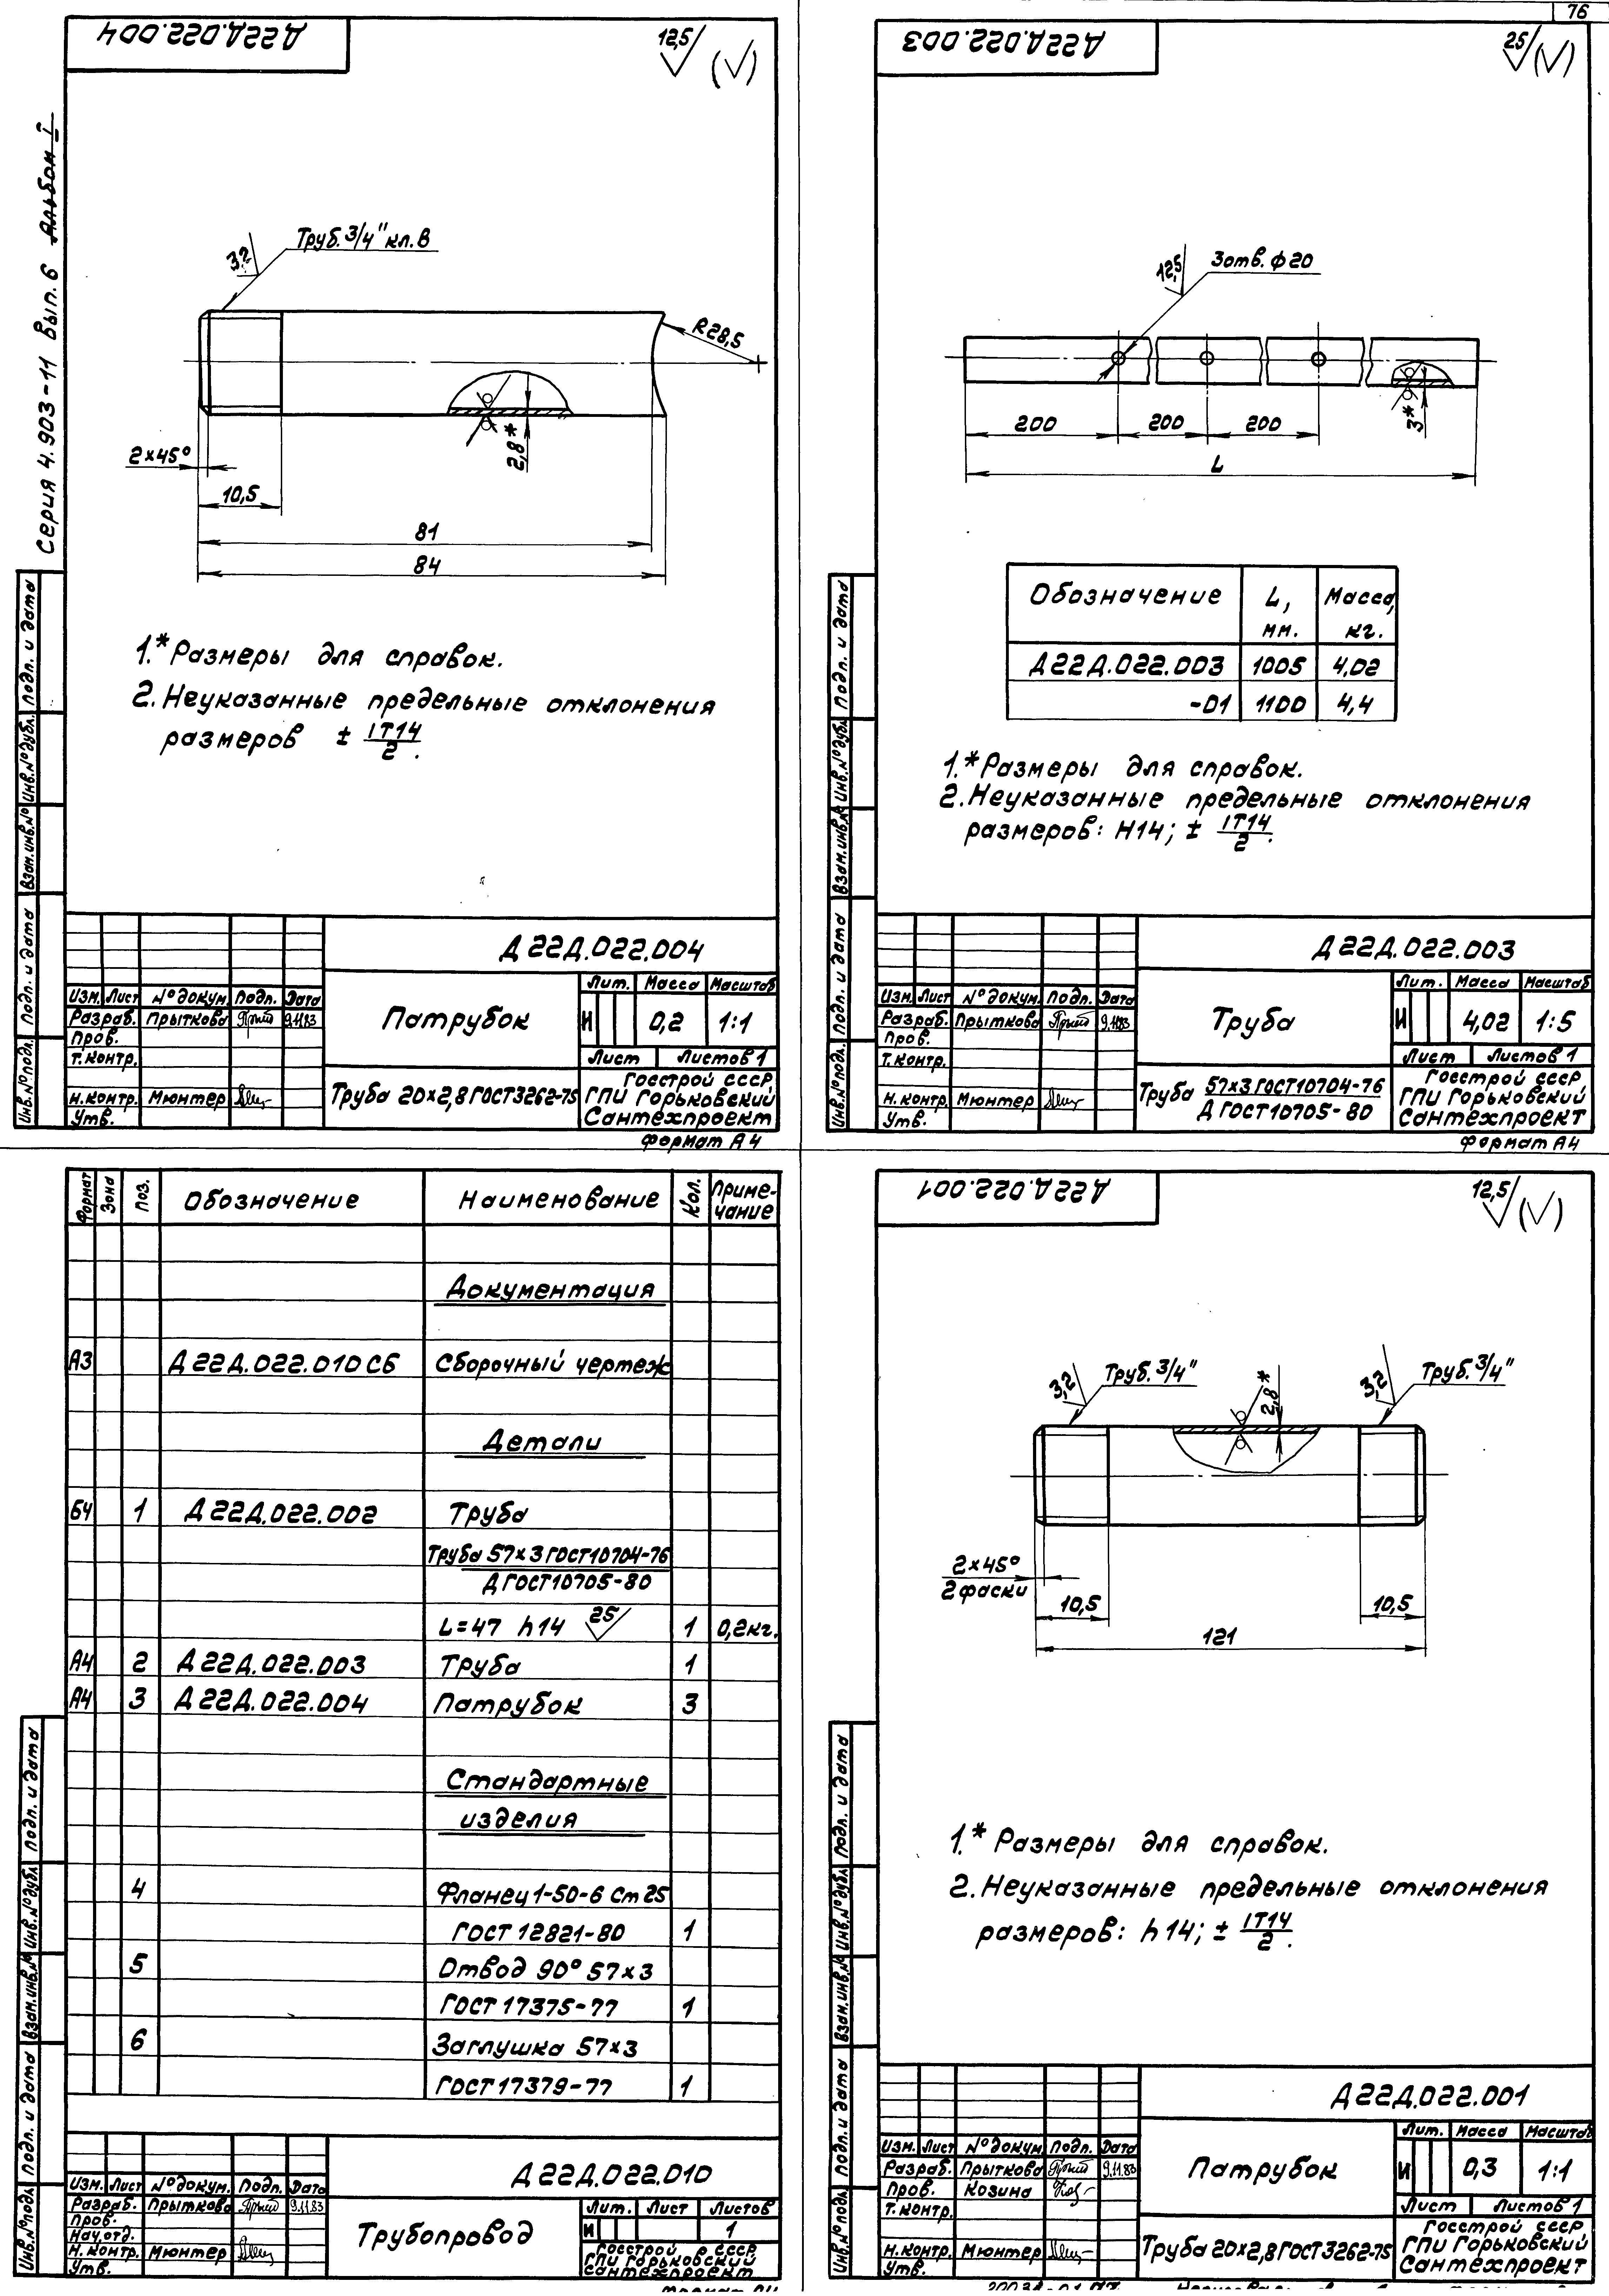 76
Серия 4.903-11 Вып. 6 Альбом I
Д22Д.022.004
12,5 (√)
3,2
Труб. 3/4" кл. В
R28,5
2,8*
2×45°
10,5
81
84
1.* Размеры для справок.
2. Неуказанные предельные отклонения
размеров ± IT14/2.
Подп. и дата
Инв. № дубл.
Взам. инв. №
Подп. и дата
Инв. № подл.
Д22Д.022.004
Изм. Лист № докум. Подп. Дата
Разраб. Прыткова 9.11.83
Пров.
Т. контр.
Н. контр. Мюнтер
Утв.
Патрубок
Лит. Масса Масштаб
И 0,2 1:1
Лист Листов 1
Труба 20×2,8 ГОСТ 3262-75
Госстрой СССР
ГПИ Горьковский
Сантехпроект
Формат А4
Д22Д.022.003
25 (√)
12,5
3 отв. ф20
200 200 200
3*
L
Обозначение L, мм. Масса, кг.
Д22Д.022.003 1005 4,02
-01 1100 4,4
1.* Размеры для справок.
2. Неуказанные предельные отклонения
размеров: H14; ± IT14/2.
Подп. и дата
Инв. № дубл.
Взам. инв. №
Подп. и дата
Инв. № подл.
Д22Д.022.003
Изм. Лист № докум. Подп. Дата
Разраб. Прыткова 9.11.83
Пров.
Т. контр.
Н. контр. Мюнтер
Утв.
Труба
Лит. Масса Масштаб
И 4,02 1:5
Лист Листов 1
Труба 57×3 ГОСТ 10704-76
Д ГОСТ 10705-80
Госстрой СССР
ГПИ Горьковский
Сантехпроект
Формат А4
Формат Зона Поз. Обозначение Наименование Кол. Примечание
Документация
А3 Д22Д.022.010 СБ Сборочный чертеж
Детали
БЧ 1 Д22Д.022.002 Труба
Труба 57×3 ГОСТ 10704-76
Д ГОСТ 10705-80
L=47 h14 25 1 0,2кг.
А4 2 Д22Д.022.003 Труба 1
А4 3 Д22Д.022.004 Патрубок 3
Стандартные
изделия
4 Фланец 1-50-6 Ст 25
ГОСТ 12821-80 1
5 Отвод 90° 57×3
ГОСТ 17375-77 1
6 Заглушка 57×3
ГОСТ 17379-77 1
Подп. и дата
Инв. № дубл.
Взам. инв. №
Подп. и дата
Инв. № подл.
Д22Д.022.010
Изм. Лист № докум. Подп. Дата
Разраб. Прыткова 9.11.83
Пров.
Нач. отд.
Н. контр. Мюнтер
Утв.
Трубопровод
Лит. Лист Листов
И 1
Госстрой СССР
ГПИ Горьковский
Сантехпроект
Д22Д.022.001
12,5 (√)
3,2 Труб. 3/4"
2,8*
3,2 Труб. 3/4"
2×45°
2 фаски
10,5 10,5
121
1.* Размеры для справок.
2. Неуказанные предельные отклонения
размеров: h14; ± IT14/2.
Подп. и дата
Инв. № дубл.
Взам. инв. №
Подп. и дата
Инв. № подл.
Д22Д.022.001
Изм. Лист № докум. Подп. Дата
Разраб. Прыткова 9.11.83
Пров. Козина
Т. контр.
Н. контр. Мюнтер
Утв.
Патрубок
Лит. Масса Масштаб
И 0,3 1:1
Лист Листов 1
Труба 20×2,8 ГОСТ 3262-75
Госстрой СССР
ГПИ Горьковский
Сантехпроект